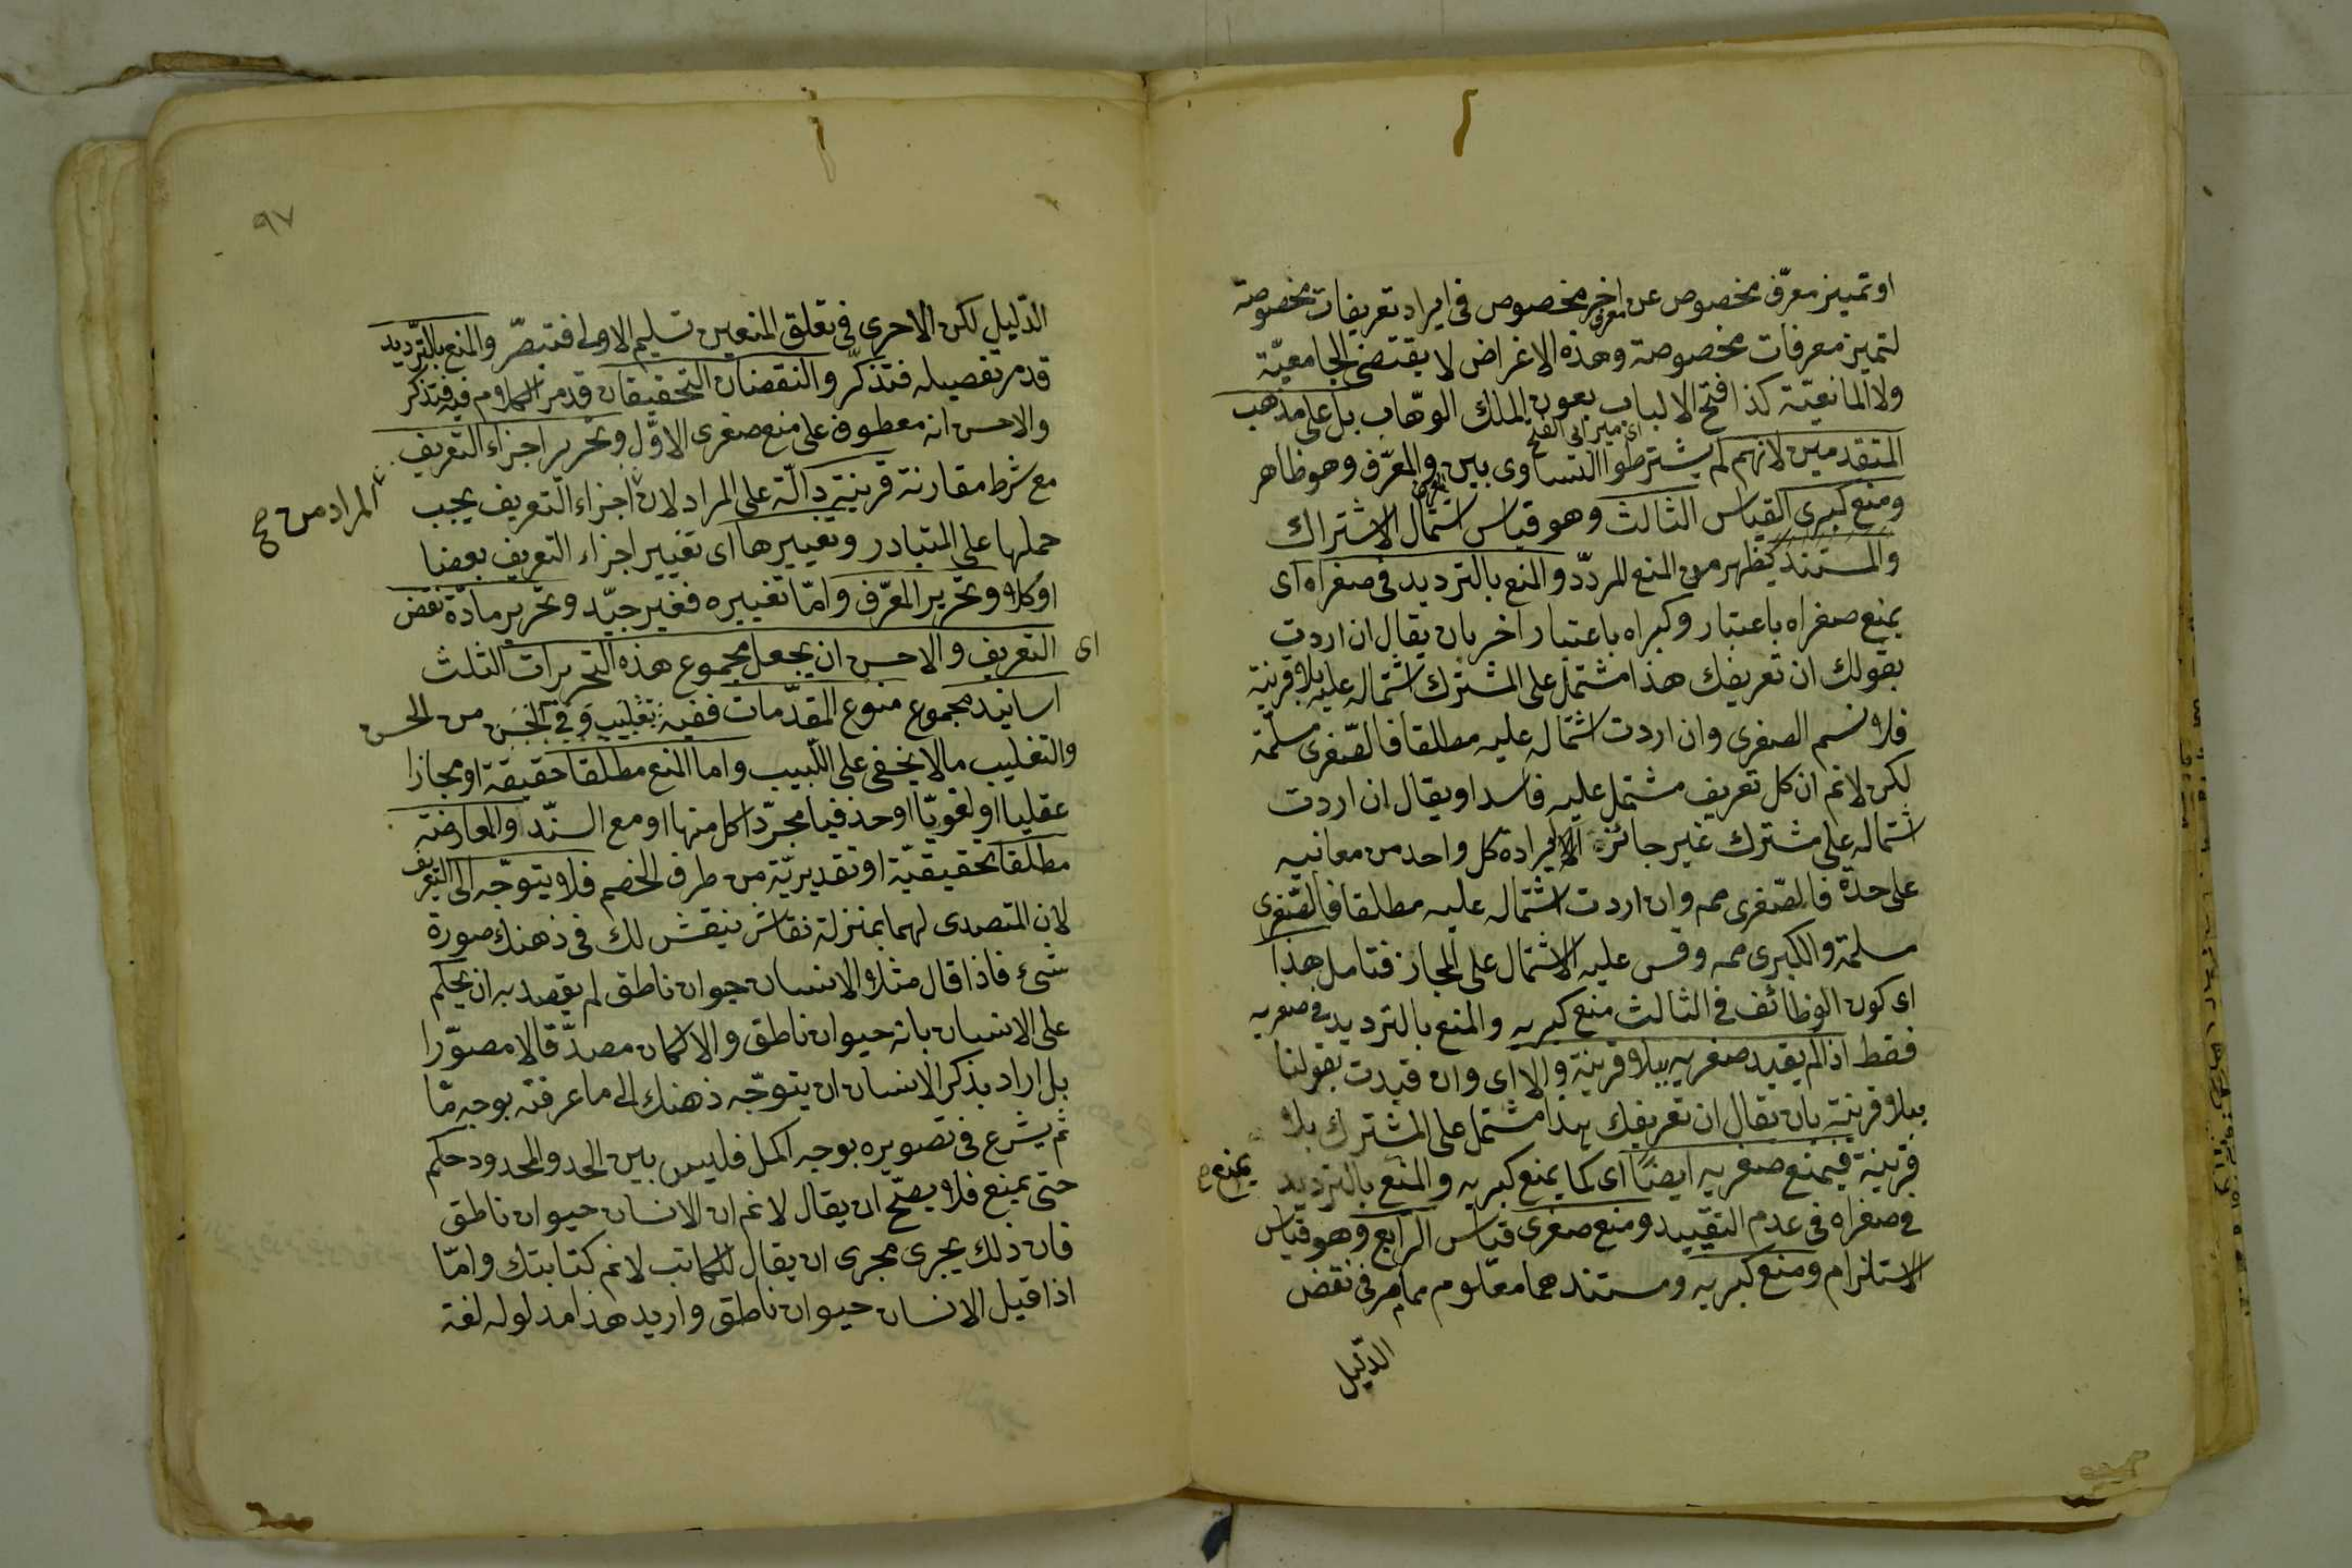 او تمييز معرّف مخصوص عن اخر مخصوص فى ايراد تعريفات مخصوصة
معرف
لتميز معرفات مخصوصة وهذه الاغراض لا يقتضى الجامعيّة
ولا المانعيّة كذا فتح الالباب بعون الملك الوهّاب بل على مذهب
اى مير ابى الفتح
المتقدمين لانهم لم يشترطوا التساوى بين والمعرّف وهو ظاهر
ومنع كبرى القياس الثالث وهو قياس اشتمال الاشتراك
والمستند يظهر من المنع المردّد والمنع بالترديد فى صغراه اى
يمنع صغراه باعتبار وكبراه باعتبار اخر بان يقال ان اردت
بقولك ان تعريفك هذا مشتمل على المشترك اشتماله عليه بلا قرينة
فلا نسم الصغرى وان اردت اشتماله عليه مطلقا فالصّغرى مسلّمة
لكن لا نم ان كل تعريف مشتمل عليه فاسد او يقال ان اردت
اشتماله على مشترك غير جائزة الارادة كل واحد من معانيه
على حدة فالصّغرى مم وان اردت اشتماله عليه مطلقا فالصّغرى
مسلمة والكبرى مم وقس عليه الاشتمال على المجاز فتامل هذا
اى كون الوظائف فى الثالث منع كبريه والمنع بالترديد فى صغريه
فقط اذا لم يقيد صغريه ببلا قرينة والا اى وان قيدت بقولنا
ببلا قرينة بان يقال ان تعريفك هذا مشتمل على المشترك بلا
قرينة فيمنع صغريه ايضًا اى كما يمنع كبريه والمنع بالترديد
يمنع ص
فى صغراه فى عدم التقييد ومنع صغرى قياس الرابع وهو قياس
الاستلزام ومنع كبريه ومستندهما معلوم مما مر فى نقض
الدّليل
٩٧
الدّليل لكن الاحرى فى تعلق المنعين تسليم الاولى فتبصّر والمنع بالتّرديد
قد مر تفصيله فتذكّر والنقضان التحقيقان قد مر الكلام فيه فتذكّر
والاحسن انه معطوف على منع صغرى الاوّل وتحرير اجزاء التعريف
مع شرط مقارنة قرينة دالّة على المراد لان اجزاء التعريف يجب
المراد من صح
حملها على المتبادر وتغييرها اى تغيير اجزاء التعريف بعضا
او كلا وتحرير المعرّف وامّا تغييره فغير جيّد وتحرير مادّة نقض
التعريف والاحسن ان يجعل مجموع هذه التحريرات الثلث
اى
اسانيد مجموع منوع المقدّمات ففيه تغليب وفى الحَسَن من الحسن
والتغليب ما لا يخفى على اللّبيب واما المنع مطلقا حقيقة او مجازا
عقليا او لغويّا او حذفيا مجرّدا كل منها او مع السنّد والمعارضة
مطلقا تحقيقيّة او تقديريّة من طرف الخصم فلا يتوجّه الى التعريف
لان المتصدى لهما بمنزلة نقاش ينقش لك فى ذهنك صورة
شئ فاذا قال مثلا الانسان حيوان ناطق لم يقصد به ان يحكم
على الانسان بانه حيوان ناطق والا لكان مصدّقا لا مصوّرا
بل اراد بذكر الانسان ان يتوجّه ذهنك الى ما عرفته بوجه مّا
ثم يشرع فى تصويره بوجه اكمل فليس بين الحد والمحدود حكم
حتى يمنع فلا يصحّ ان يقال لا نم ان الانسان حيوان ناطق
فان ذلك يجرى مجرى ان يقال للكاتب لا نم كتابتك وامّا
اذا قيل الانسان حيوان ناطق واريد هذا مدلوله لغة